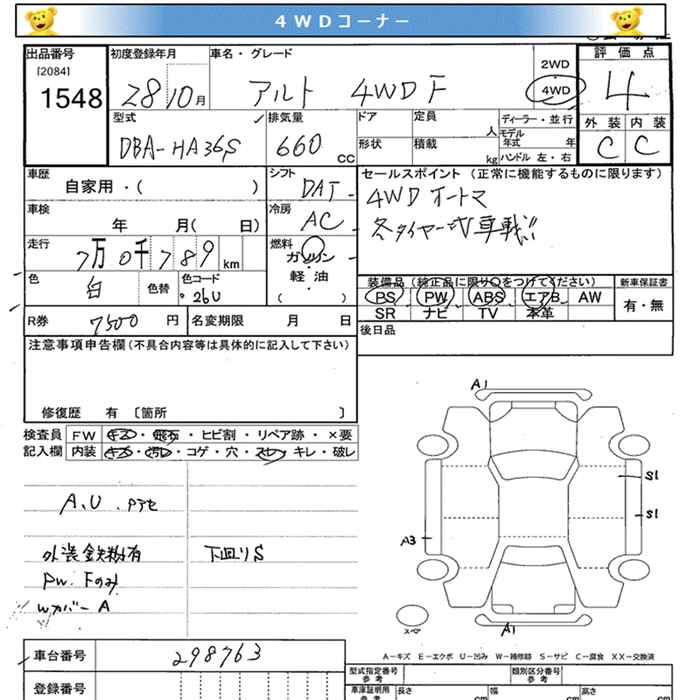 4WDコーナー
出品番号 初度登録年月 車名・グレード 2WD 評価点
[2084]
1548 28 10月 アルト 4WD F 4WD 4
型式 排気量 ドア 定員 人 ディーラー・並行 外装 内装
DBA-HA36S 660 CC 形状 積載 kg モデル年式 年 ハンドル 左・右 C C
車歴 シフト セールスポイント (正常に機能するものに限ります)
自家用・( ) DAT 4WD オートマ
車検 冷房
年 月( 日) AC 冬タイヤ一式車載!!
走行 燃料
7万0千789km ガソリン・軽油 ( )
色 白 色替 色コード 26U
装備品(純正品に限り○をつけてください) 新車保証書
PS PW ABS エアB AW 有・無
SR ナビ TV 本革
R券 7500 円 名変期限 月 日 後日品
注意事項申告欄(不具合内容等は具体的に記入して下さい)
修復歴 有 〔箇所 〕
検査員 FW キズ・飛石・ヒビ割・リペア跡・×要
記入欄 内装 キズ・汚レ・コゲ・穴・スレ・キレ・破レ
A、U、Pアセ
外装鉄粉有 下廻りS
PW.Fのみ
WカバーA
A1
S1
S1
A3
スペア
A1
A-キズ E-エクボ U-凹み W-補修跡 S-サビ C-腐食 XX-交換済
車台番号 298763
型式指定番号 参考 類別区分番号 参考
登録番号 車庫証明用 参考 長さ cm 幅 cm 高さ cm